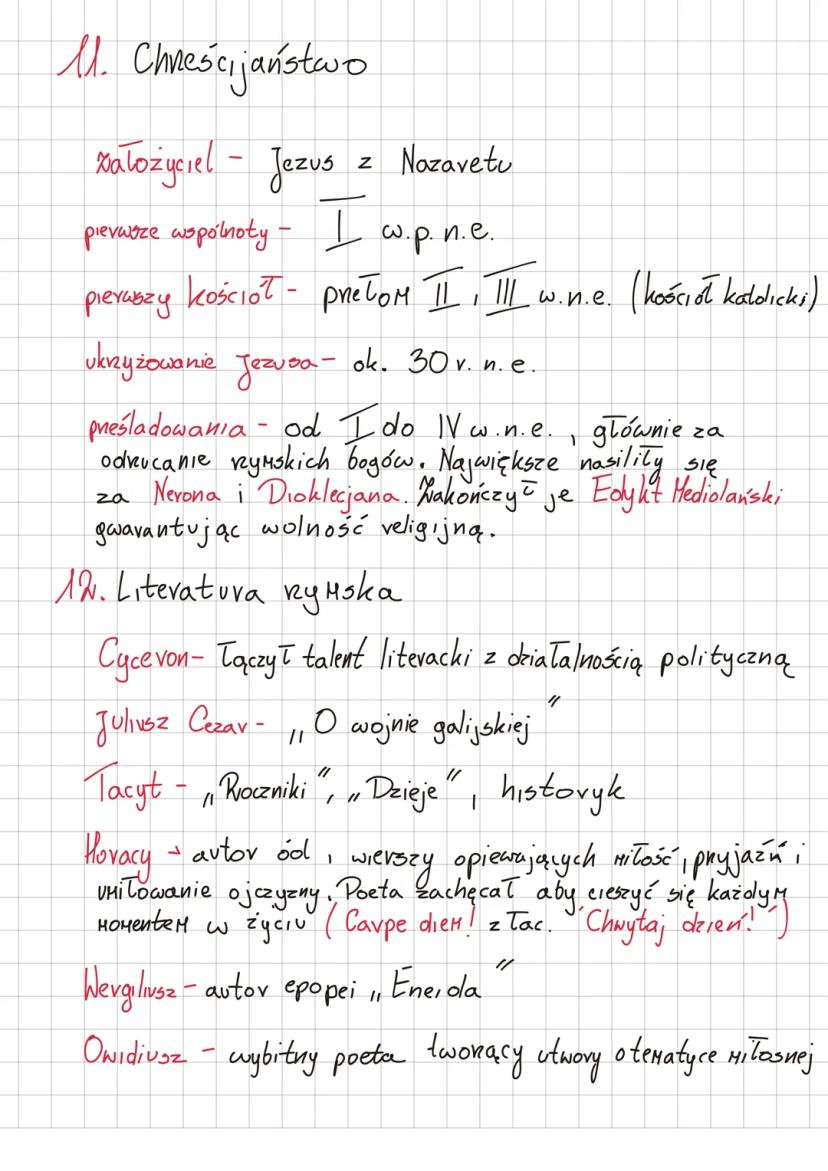 11. Chrześcijaństwo
założyciel - Jezus z Nazaretu
pierwsze wspólnoty - I w.p.n.e.
pierwszy kościół - przełom II i III w.n.e. (kościół katolicki)
ukrzyżowanie Jezusa - ok. 30 r. n.e.
prześladowania - od I do IV w.n.e., głównie za
odrzucanie rzymskich bogów. Największe nasiliły się
za Nerona i Dioklecjana. Zakończył je Edykt Mediolański
gwarantując wolność religijną.
12. Literatura rzymska
Cyceron - łączył talent literacki z działalnością polityczną
Juliusz Cezar - „O wojnie galijskiej"
Tacyt - „Roczniki", „Dzieje", historyk
Horacy → autor ód, wierszy opiewających miłość, przyjaźń i
umiłowanie ojczyzny. Poeta zachęcał aby cieszyć się każdym
momentem w życiu (Carpe diem! z łac. "Chwytaj dzień!")
Wergiliusz - autor epopei „Eneida"
Owidiusz - wybitny poeta tworzący utwory o tematyce miłosnej